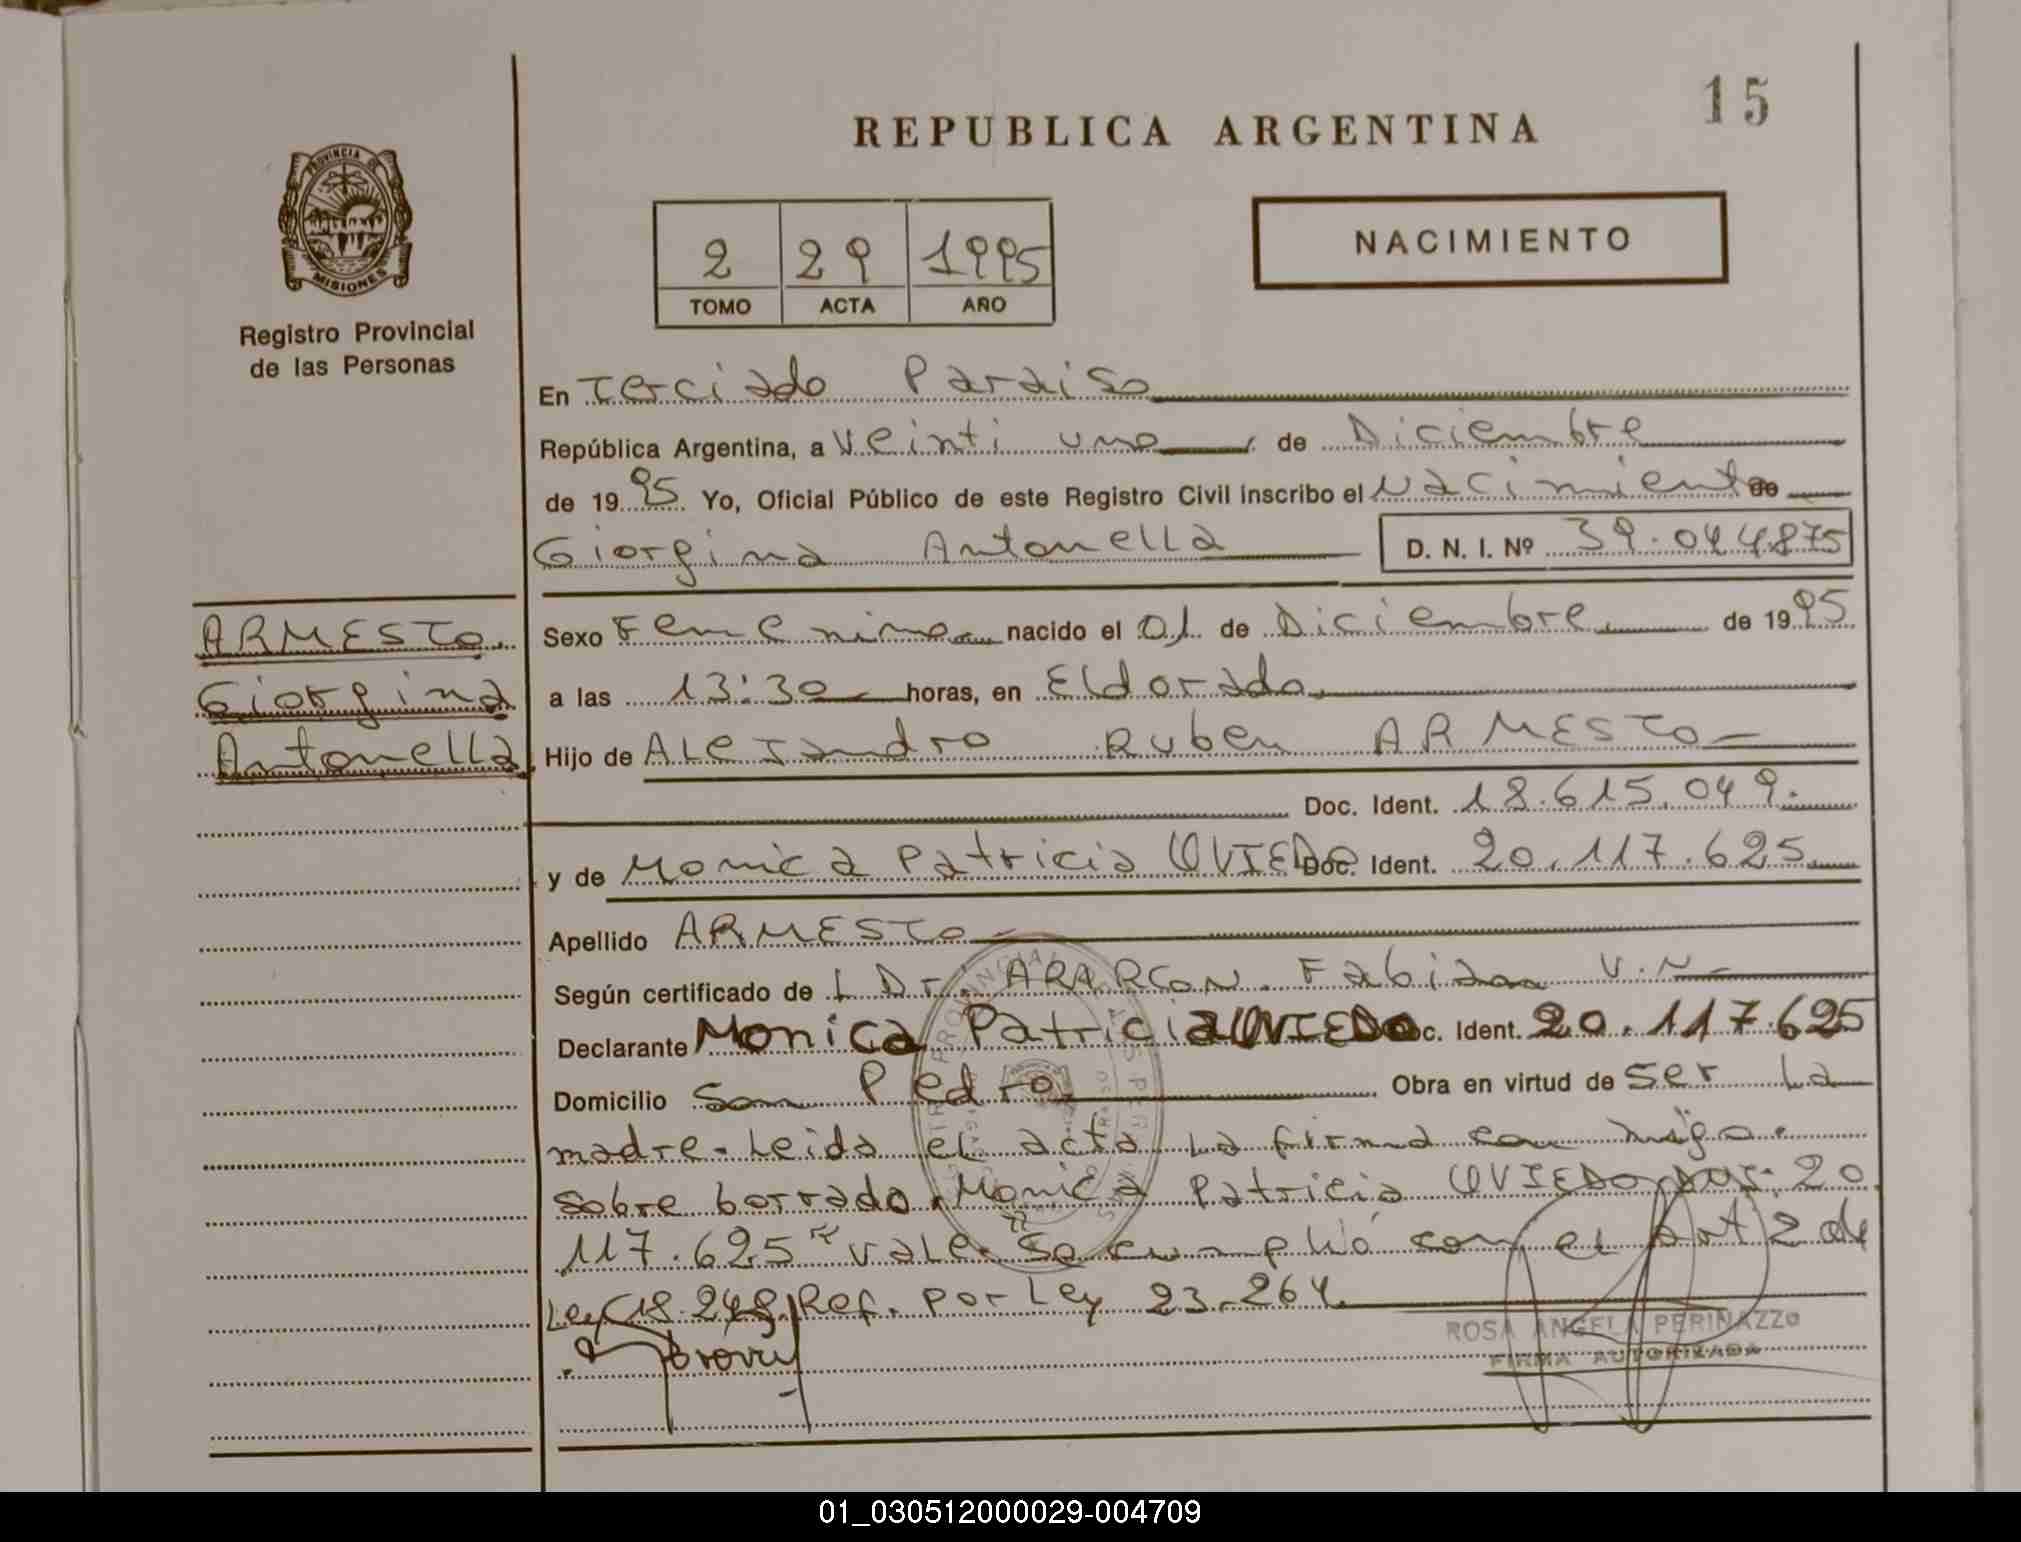 15
REPUBLICA ARGENTINA
PROVINCIA DE
MISIONES
Registro Provincial
de las Personas
2 29 1995
TOMO ACTA AÑO
NACIMIENTO
En Terciado Paraiso
República Argentina, a Veinti uno de Diciembre
de 1995 Yo, Oficial Público de este Registro Civil inscribo el Nacimiento de
Giorgina Antonella D. N. I. Nº 39.044875
ARMESTO.
Giorgina
Antonella
Sexo Femenino nacido el 01 de Diciembre de 1995
a las 13:30 horas, en Eldorado
Hijo de Alejandro Ruben ARMESTO
Doc. Ident. 18.615.049.
y de Monica Patricia OVIEDO Doc. Ident. 20.117.625
Apellido ARMESTO
Según certificado de L Dr. ARARCON. Fabian V.N
Declarante Monica Patricia OVIEDO Doc. Ident. 20.117.625
Domicilio San Pedro Obra en virtud de Ser La
madre. Leida el acta La firma con migo.
Sobre borrado. Monica Patricia OVIEDO 20.
117.625" vale. Se cumplió con el Art 2 de
Ley 18.248. Ref. por Ley 23.264.
ROSA ANGELA PERINAZZO
FIRMA AUTORIZADA
01_030512000029-004709